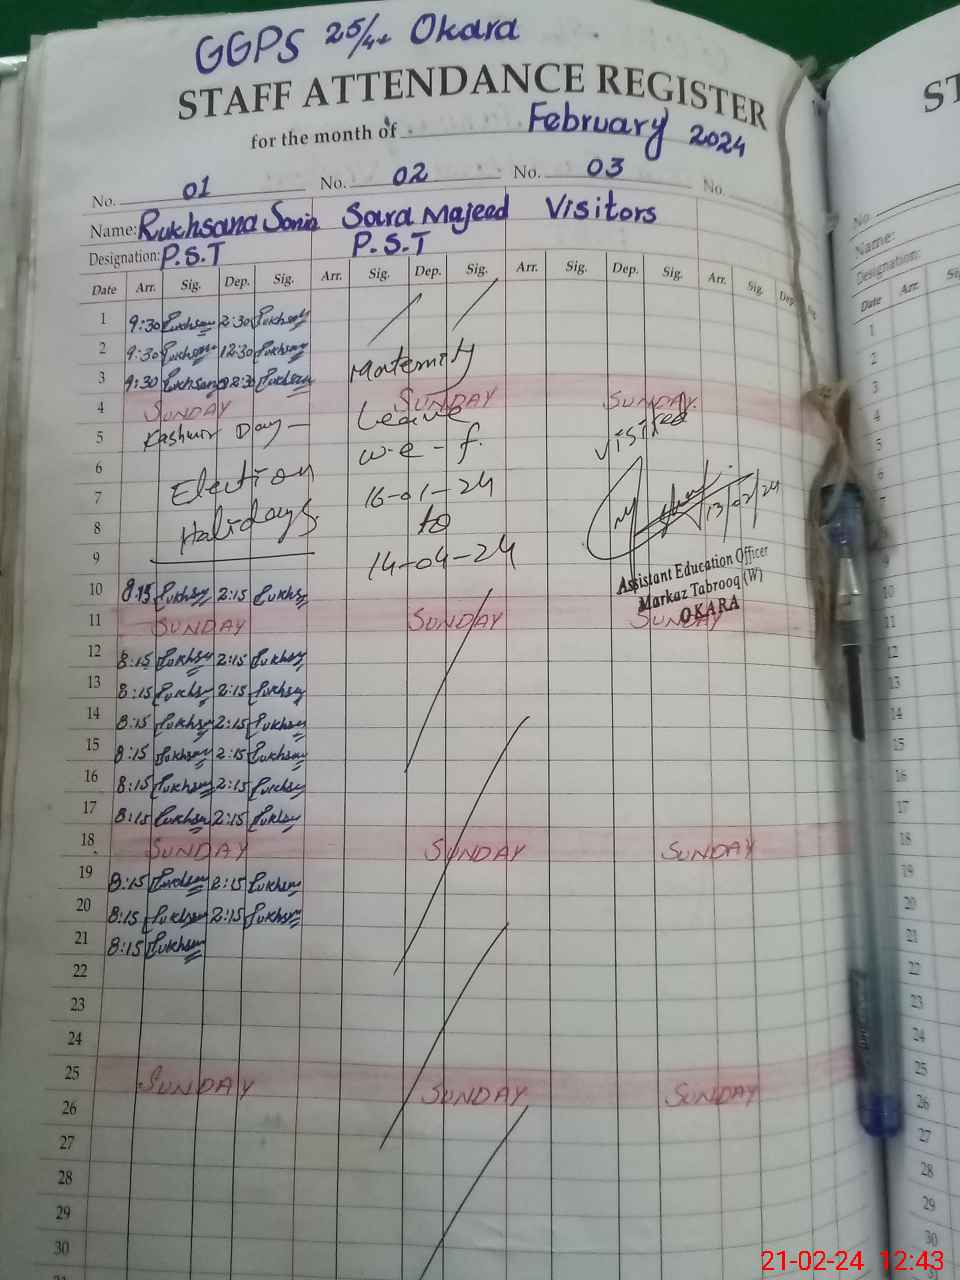 GGPS 25/4L Okara
STAFF ATTENDANCE REGISTER
for the month of February 2024
No. 01 No. 02 No. 03 No.
Name: Rukhsana Sonia Sara Majeed Visitors
Designation: P.S.T P.S.T
Date Arr. Sig. Dep. Sig. Arr. Sig. Dep. Sig. Arr. Sig. Dep. Sig. Arr. Sig. Dep.
1 9:30 Rukhsana 2:30 Rukhsana
2 9:30 Rukhsana 12:30 Rukhsana
3 9:30 Rukhsana 2:30 Rukhsana Maternity
4 SUNDAY SUNDAY SUNDAY
5 Kashmir Day Leave Visited
6 w-e-f.
7 Election 16-01-24 13/02/24
8 Halidays to
9 14-04-24 Assistant Education Officer
10 8:15 Rukhsana 2:15 Rukhsana Markaz Tabrooq (W)
OKARA
11 SUNDAY SUNDAY SUNDAY
12 8:15 Rukhsana 2:15 Rukhsana
13 8:15 Rukhsana 2:15 Rukhsana
14 8:15 Rukhsana 2:15 Rukhsana
15 8:15 Rukhsana 2:15 Rukhsana
16 8:15 Rukhsana 2:15 Rukhsana
17 8:15 Rukhsana 2:15 Rukhsana
18 SUNDAY SUNDAY SUNDAY
19 8:15 Rukhsana 2:15 Rukhsana
20 8:15 Rukhsana 2:15 Rukhsana
21 8:15 Rukhsana
22
23
24
25 SUNDAY SUNDAY SUNDAY
26
27
28
29
30
ST
No
Name:
Designation:
Date Arr.
1
2
3
4
5
6
7
8
9
10
11
12
13
14
15
16
17
18
19
20
21
22
23
24
25
26
27
28
29
30
21-02-24 12:43